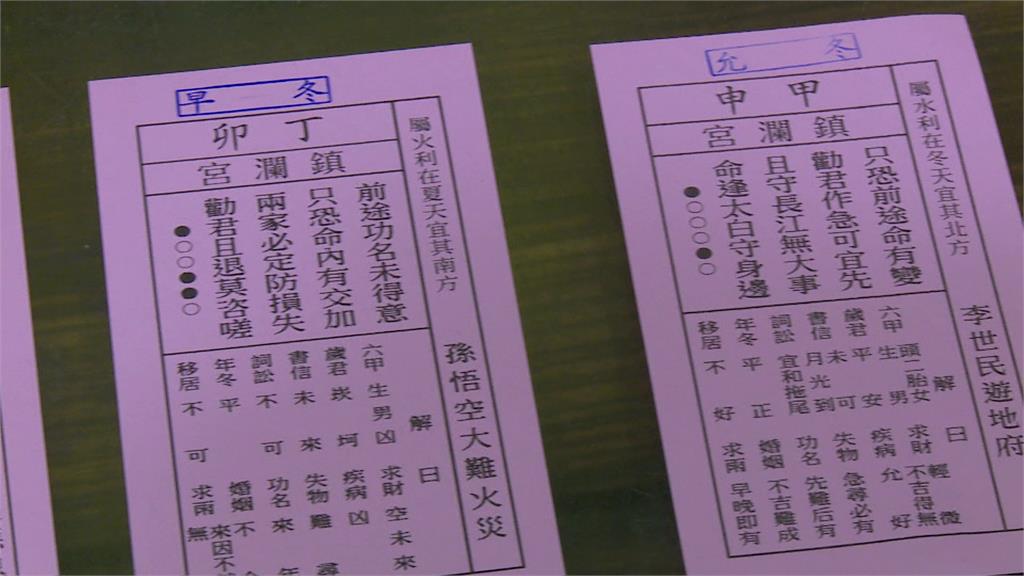 早 冬
丁卯
鎮瀾宮
屬火利在夏天宜其南方
孫悟空大難火災
前途功名未得意
只恐命內有交加
兩家必定防損失
勸君且退莫咨嗟
●○○●●○
解曰
六甲 生男凶
求財 空未來
歲君 崁坷
疾病 凶
書信 未來
失物 難尋
詞訟 不可
功名 來年
年冬 平
婚姻 來因不
移居 不可
求雨 無
允 冬
甲申
鎮瀾宮
屬水利在冬天宜其北方
李世民遊地府
只恐前途命有變
勸君作急可宜先
且守長江無大事
命逢太白守身邊
●○○○●○
解曰
六甲 生男 頭二胎女
求財 不吉得無 輕微
歲君 平安
疾病 允好
書信 月光到
失物 急尋必有
詞訟 宜和拖尾
功名 先難后有
年冬 平正
婚姻 不吉難成
移居 不好
求雨 早晚即有